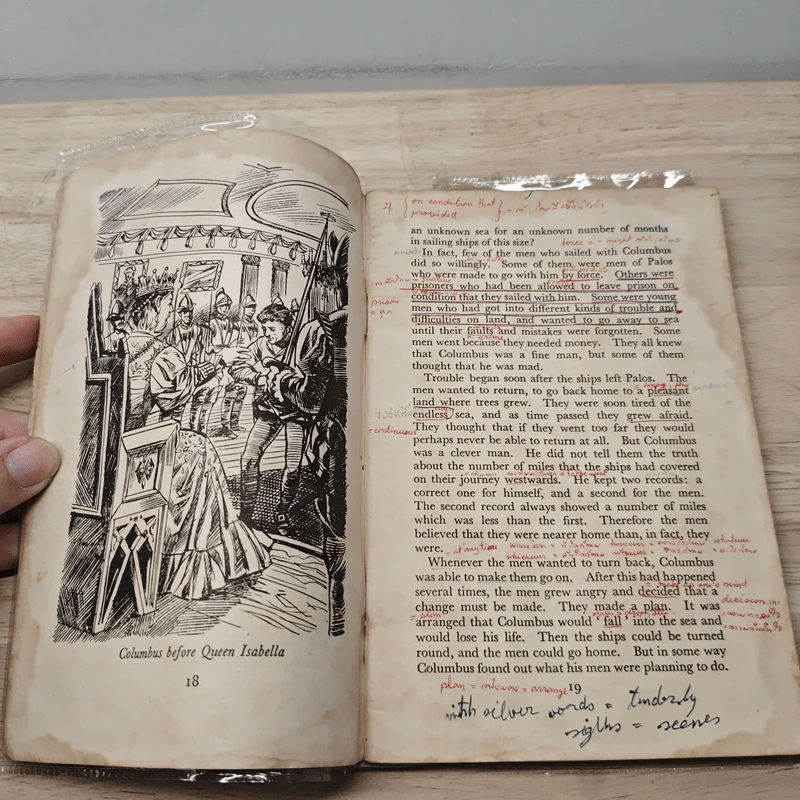 Columbus before Queen Isabella
18
if { on condition that
provided
an unknown sea for an unknown number of months
in sailing ships of this size?
force = might
In fact, few of the men who sailed with Columbus
did so willingly. Some of them were men of Palos
who were made to go with him by force. Others were
prisoners who had been allowed to leave prison on
condition that they sailed with him. Some were young
prison
men who had got into different kinds of trouble and
difficulties on land, and wanted to go away to sea
until their faults and mistakes were forgotten. Some
men went because they needed money. They all knew
that Columbus was a fine man, but some of them
thought that he was mad.
Trouble began soon after the ships left Palos. The
men wanted to return, to go back home to a pleasant
land where trees grew. They were soon tired of the
endless sea, and as time passed they grew afraid.
= continuous
They thought that if they went too far they would
perhaps never be able to return at all. But Columbus
was a clever man. He did not tell them the truth
about the number of miles that the ships had covered
on their journey westwards. He kept two records: a
correct one for himself, and a second for the men.
The second record always showed a number of miles
which was less than the first. Therefore the men
believed that they were nearer home than, in fact, they
were.
= at any time
however
whatever
whichever
whoever
Whenever the men wanted to turn back, Columbus
was able to make them go on. After this had happened
= make up one's mind
several times, the men grew angry and decided that a
decision
change must be made. They made a plan. It was
= plan
arranged that Columbus would 'fall' into the sea and
would lose his life. Then the ships could be turned
round, and the men could go home. But in some way
Columbus found out what his men were planning to do.
plan = = arrange
19
with silver words = tenderly
sigths = scenes